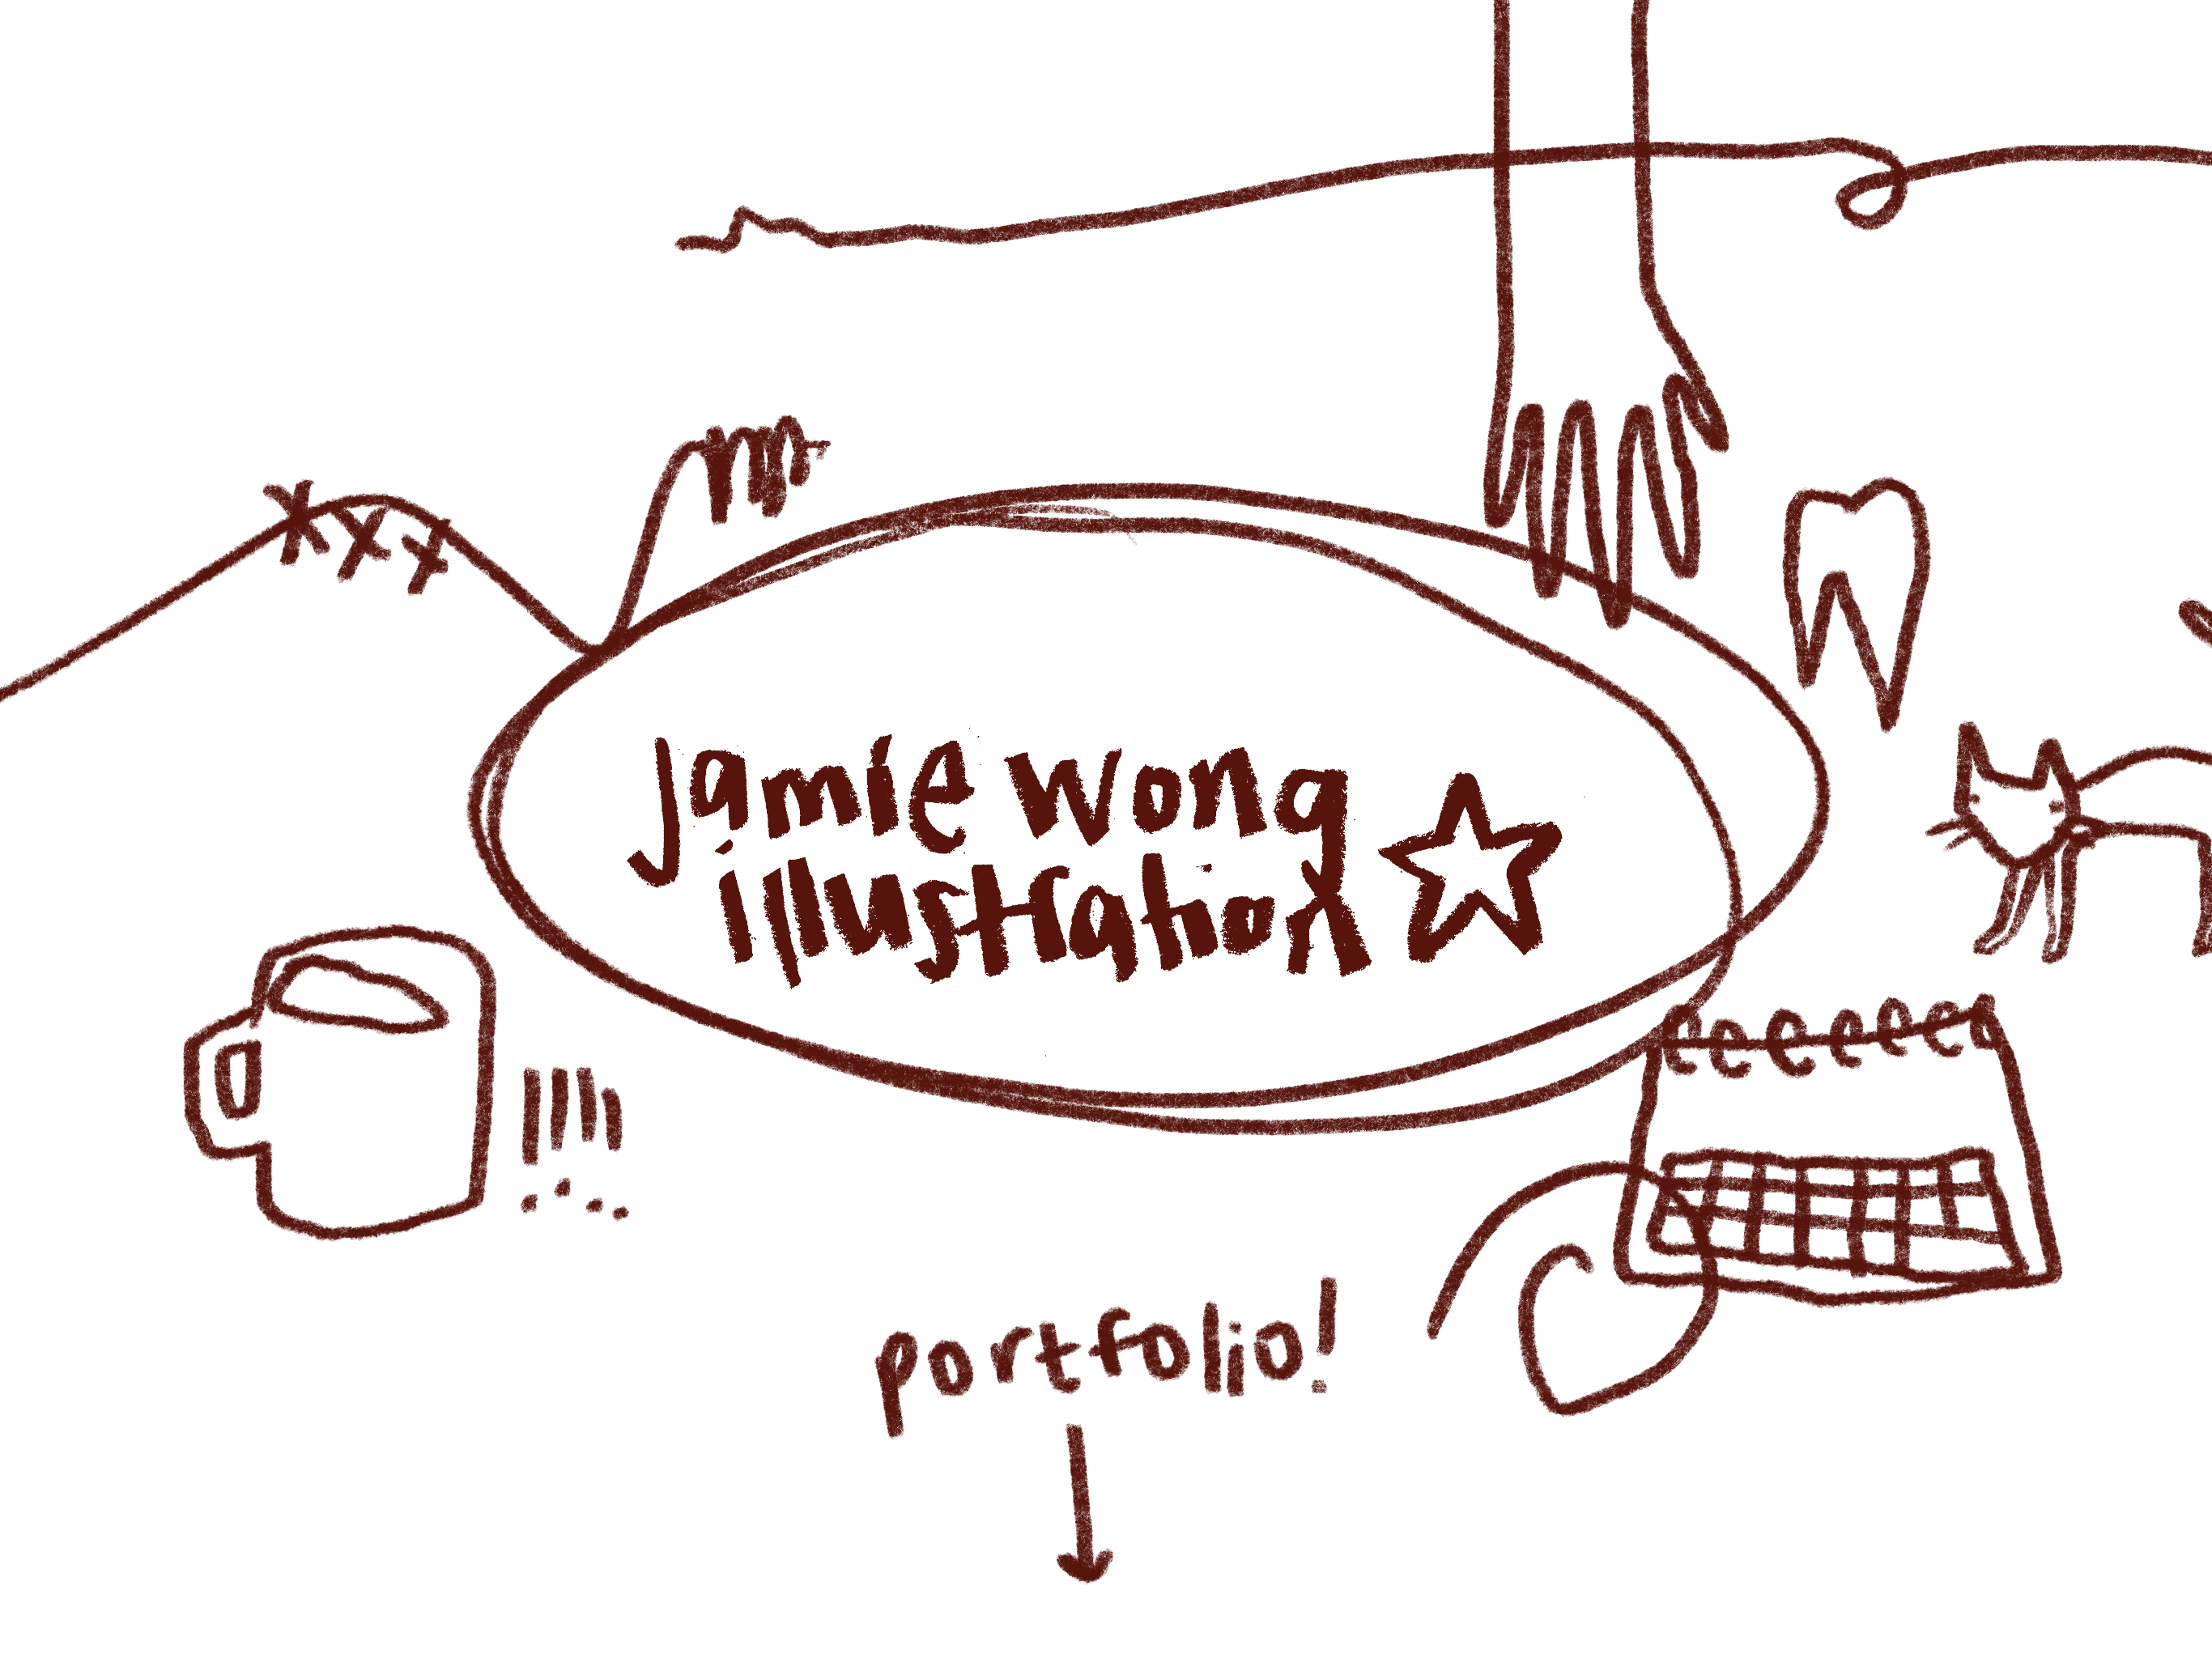 jamie wong
illustration
portfolio!